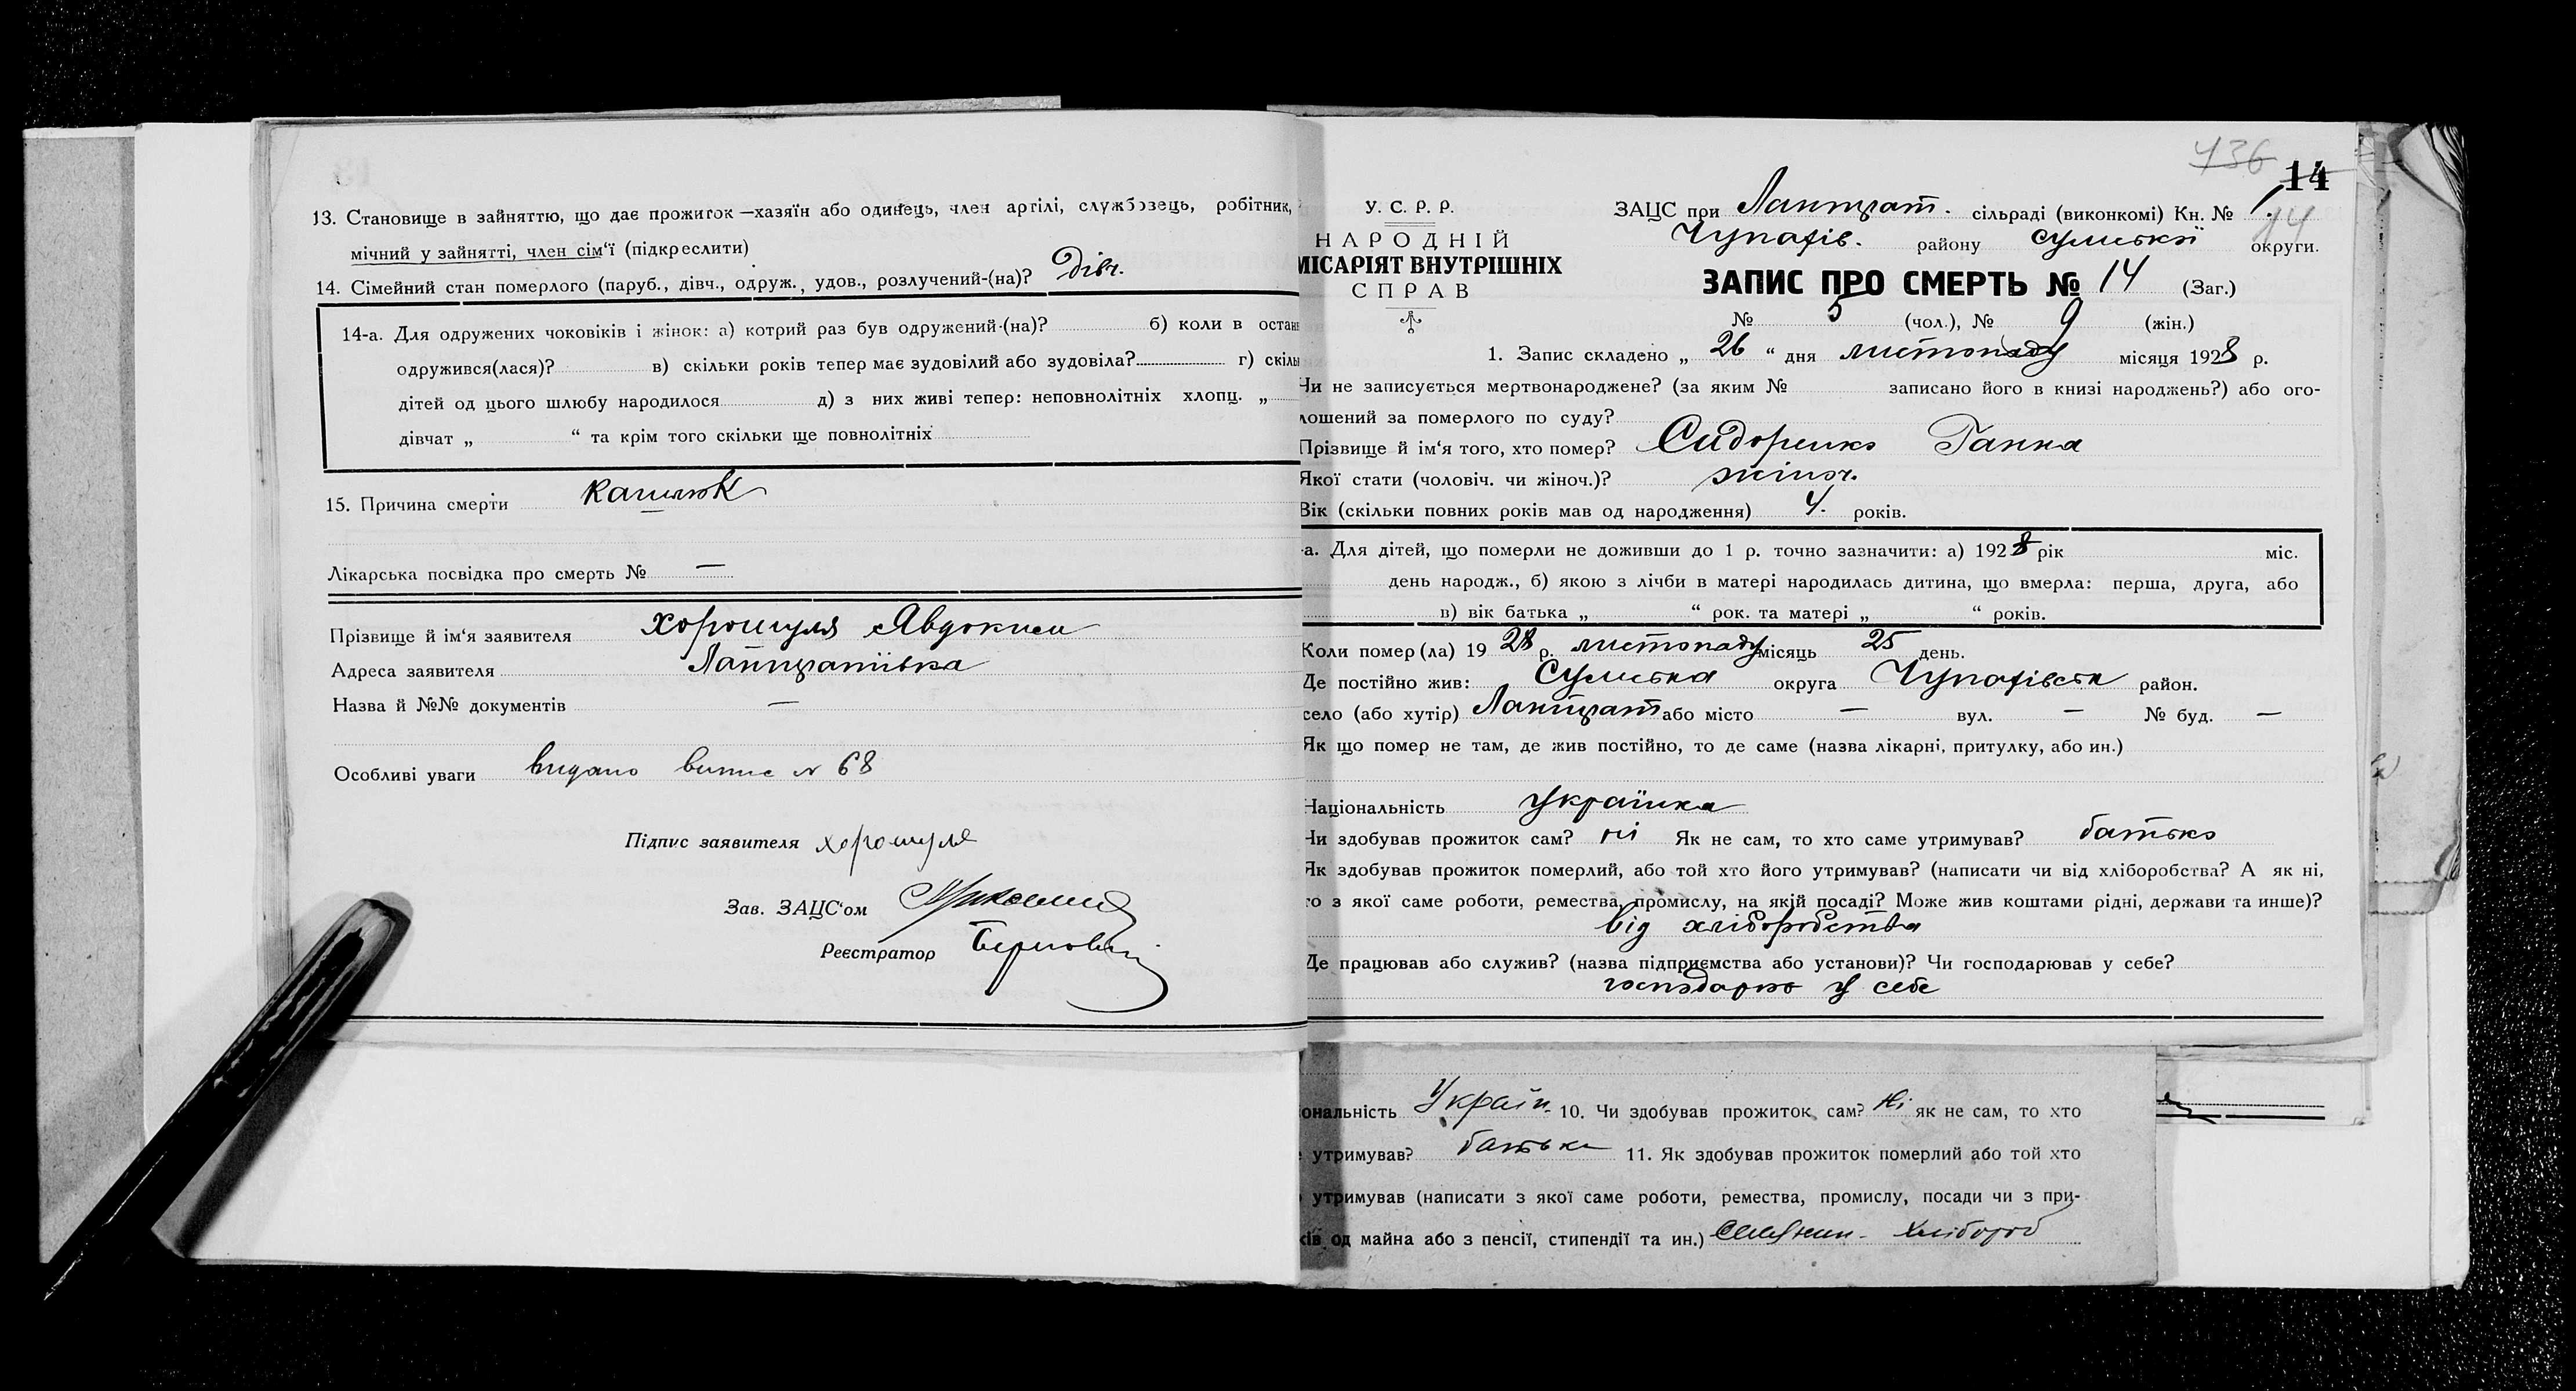 13. Становище в зайняттю, що дає прожиток—хазяїн або одинець, член артілі, службовець, робітник,
мічний у зайнятті, член сім‘ї (підкреслити)
14. Сімейний стан померлого (паруб., дівч., одруж., удов., розлучений-(на)? дівч.
14-а. Для одружених чоковіків і жінок: а) котрий раз був одружений-(на)? б) коли в остан
одружився(лася)? в) скільки років тепер має зудовілий або зудовіла? г) скіль
дітей од цього шлюбу народилося д) з них живі тепер: неповнолітніх хлопц. „
дівчат „ “ та крім того скільки ще повнолітніх
15. Причина смерти кашлюк
Лікарська посвідка про смерть № —
Прізвище й ім‘я заявителя Хорошуля Явдокии
Адреса заявителя
Назва й №№ документів —
Особливі уваги видано випис № 68
Підпис заявителя Хорошуля
Зав. ЗАЦС‘ом
Реєстратор
436
14
У. С. Р. Р.
НАРОДНІЙ
МІСАРІЯТ ВНУТРІШНІХ
СПРАВ
ЗАЦС при сільраді (виконкомі) Кн. № 1
14
Чупахів. району Сумської округи.
ЗАПИС ПРО СМЕРТЬ № 14 (Заг.)
№ 5 (чол.), № 9 (жін.)
1. Запис складено „ 26 “ дня листопаду місяця 1928 р.
Чи не записується мертвонароджене? (за яким № записано його в книзі народжень?) або ого-
лошений за померлого по суду?
Прізвище й ім‘я того, хто помер? Сидоренко Ганна
Якої стати (чоловіч. чи жіноч.)? жіноч.
Вік (скільки повних років мав од народження) 4. років.
-а. Для дітей, що померли не доживши до 1 р. точно зазначити: а) 1928 рік міс.
день народж., б) якою з лічби в матері народилась дитина, що вмерла: перша, друга, або
в) вік батька „ “ рок. та матері „ “ років.
Коли помер(ла) 19 28 р. листопаду місяць 25 день.
Де постійно жив: Сумська округа Чупахівськ район.
село (або хутір) або місто — вул. — № буд. —
Як що помер не там, де жив постійно, то де саме (назва лікарні, притулку, або ин.)
Національність Українка
Чи здобував прожиток сам? ні Як не сам, то хто саме утримував? батько
Як здобував прожиток померлий, або той хто його утримував? (написати чи від хліборобства? А як ні,
то з якої саме роботи, ремества, промислу, на якій посаді? Може жив коштами рідні, держави та инше)?
від хліборобства
Де працював або служив? (назва підприємства або установи)? Чи господарював у себе?
господарю у себе
ональність Україн. 10. Чи здобував прожиток сам? Ні як не сам, то хто
утримував? батька 11. Як здобував прожиток померлий або той хто
утримував (написати з якої саме роботи, ремества, промислу, посади чи з при-
ків од майна або з пенсії, стипендії та ин.) хлібороб